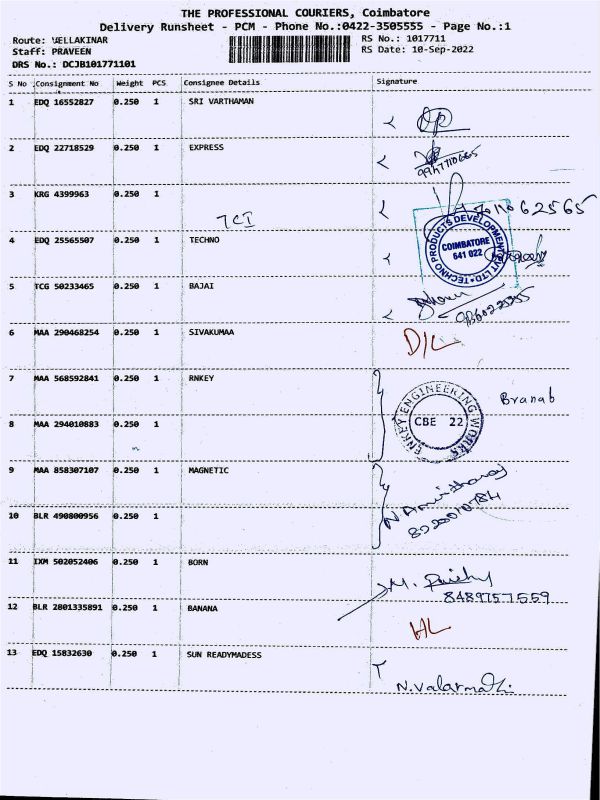 THE PROFESSIONAL COURIERS, Coimbatore
Delivery Runsheet - PCM - Phone No.:0422-3505555 - Page No.:1
Route: VELLAKINAR RS No.: 1017711
Staff: PRAVEEN RS Date: 10-Sep-2022
DRS No.: DCJB101771101
S No Consignment No Weight PCS Consignee Details Signature
1 EDQ 16552827 0.250 1 SRI VARTHAMAN
2 EDQ 22718529 0.250 1 EXPRESS
3 KRG 4399963 0.250 1
TCI
4 EDQ 25565507 0.250 1 TECHNO
TECHNO PRODUCTS DEVELOPMENT PVT LTD
COIMBATORE
641 022
5 TCG 50233465 0.250 1 BAJAI
6 MAA 290468254 0.250 1 SIVAKUMAA D/L
7 MAA 568592841 0.250 1 RNKEY
ENKEY ENGINEERING WORKS
CBE 22
Branab
8 MAA 294010883 0.250 1
9 MAA 858307107 0.250 1 MAGNETIC
8220010784
10 BLR 490800956 0.250 1
11 IXM 502052406 0.250 1 BORN
8489757559
12 BLR 2801335891 0.250 1 BANANA
13 EDQ 15832630 0.250 1 SUN READYMADESS
N.Valarmathi